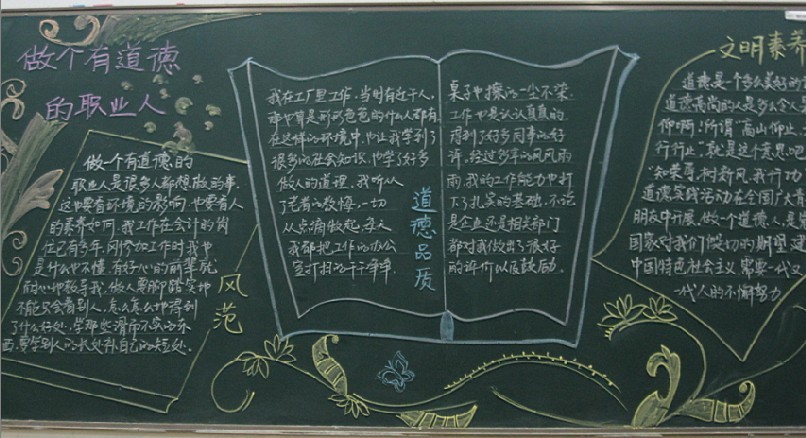 做个有道德
的职业人
做一个有道德的
职业人是很多人都想做的事.
这也要看环境的影响 也要看人
的素养如何.我工作在会计的岗
位已有多年.刚参加工作时我也
是什么也不懂.有好心的前辈就
耐心地教导我.做人要脚踏实地
不能只会看别人,怎么怎么地得到
了什么好处.学那些滑而不实的东
西.要学别人的长处补自己的短处.
风范
我在工厂里工作.当时有近千人.
那也算是形形色色的什么人都有.
在这样的环境中.也让我学到了
很多的社会知识.也学了好多
做人的道理.我听从
了老前的教悔.一切
从实际做起.每天
我都把工作的办公
室打扫的干干净净.
道德品质
桌子也擦的一尘不染.
工作也是认认真真的.
得到了好多同事的好
评.经过多年的风风雨
雨.我的工作能力也打
下了扎实的基础.不论
是企业还是相关部门
都对我做出了很好
的评价以及鼓励.
文明素养
道德是一个多么美好的
道德高尚的人是多么令人
仰啊!所谓"高山仰止,
行行止"就是这个意思吧
"知荣辱,树新风,我行动"
道德实践活动在全国广大
朋友中开展.做一个道德人,是
国家对我们殷切的期望.建
中国特色社会主义 需要一代又
一代人的不懈努力